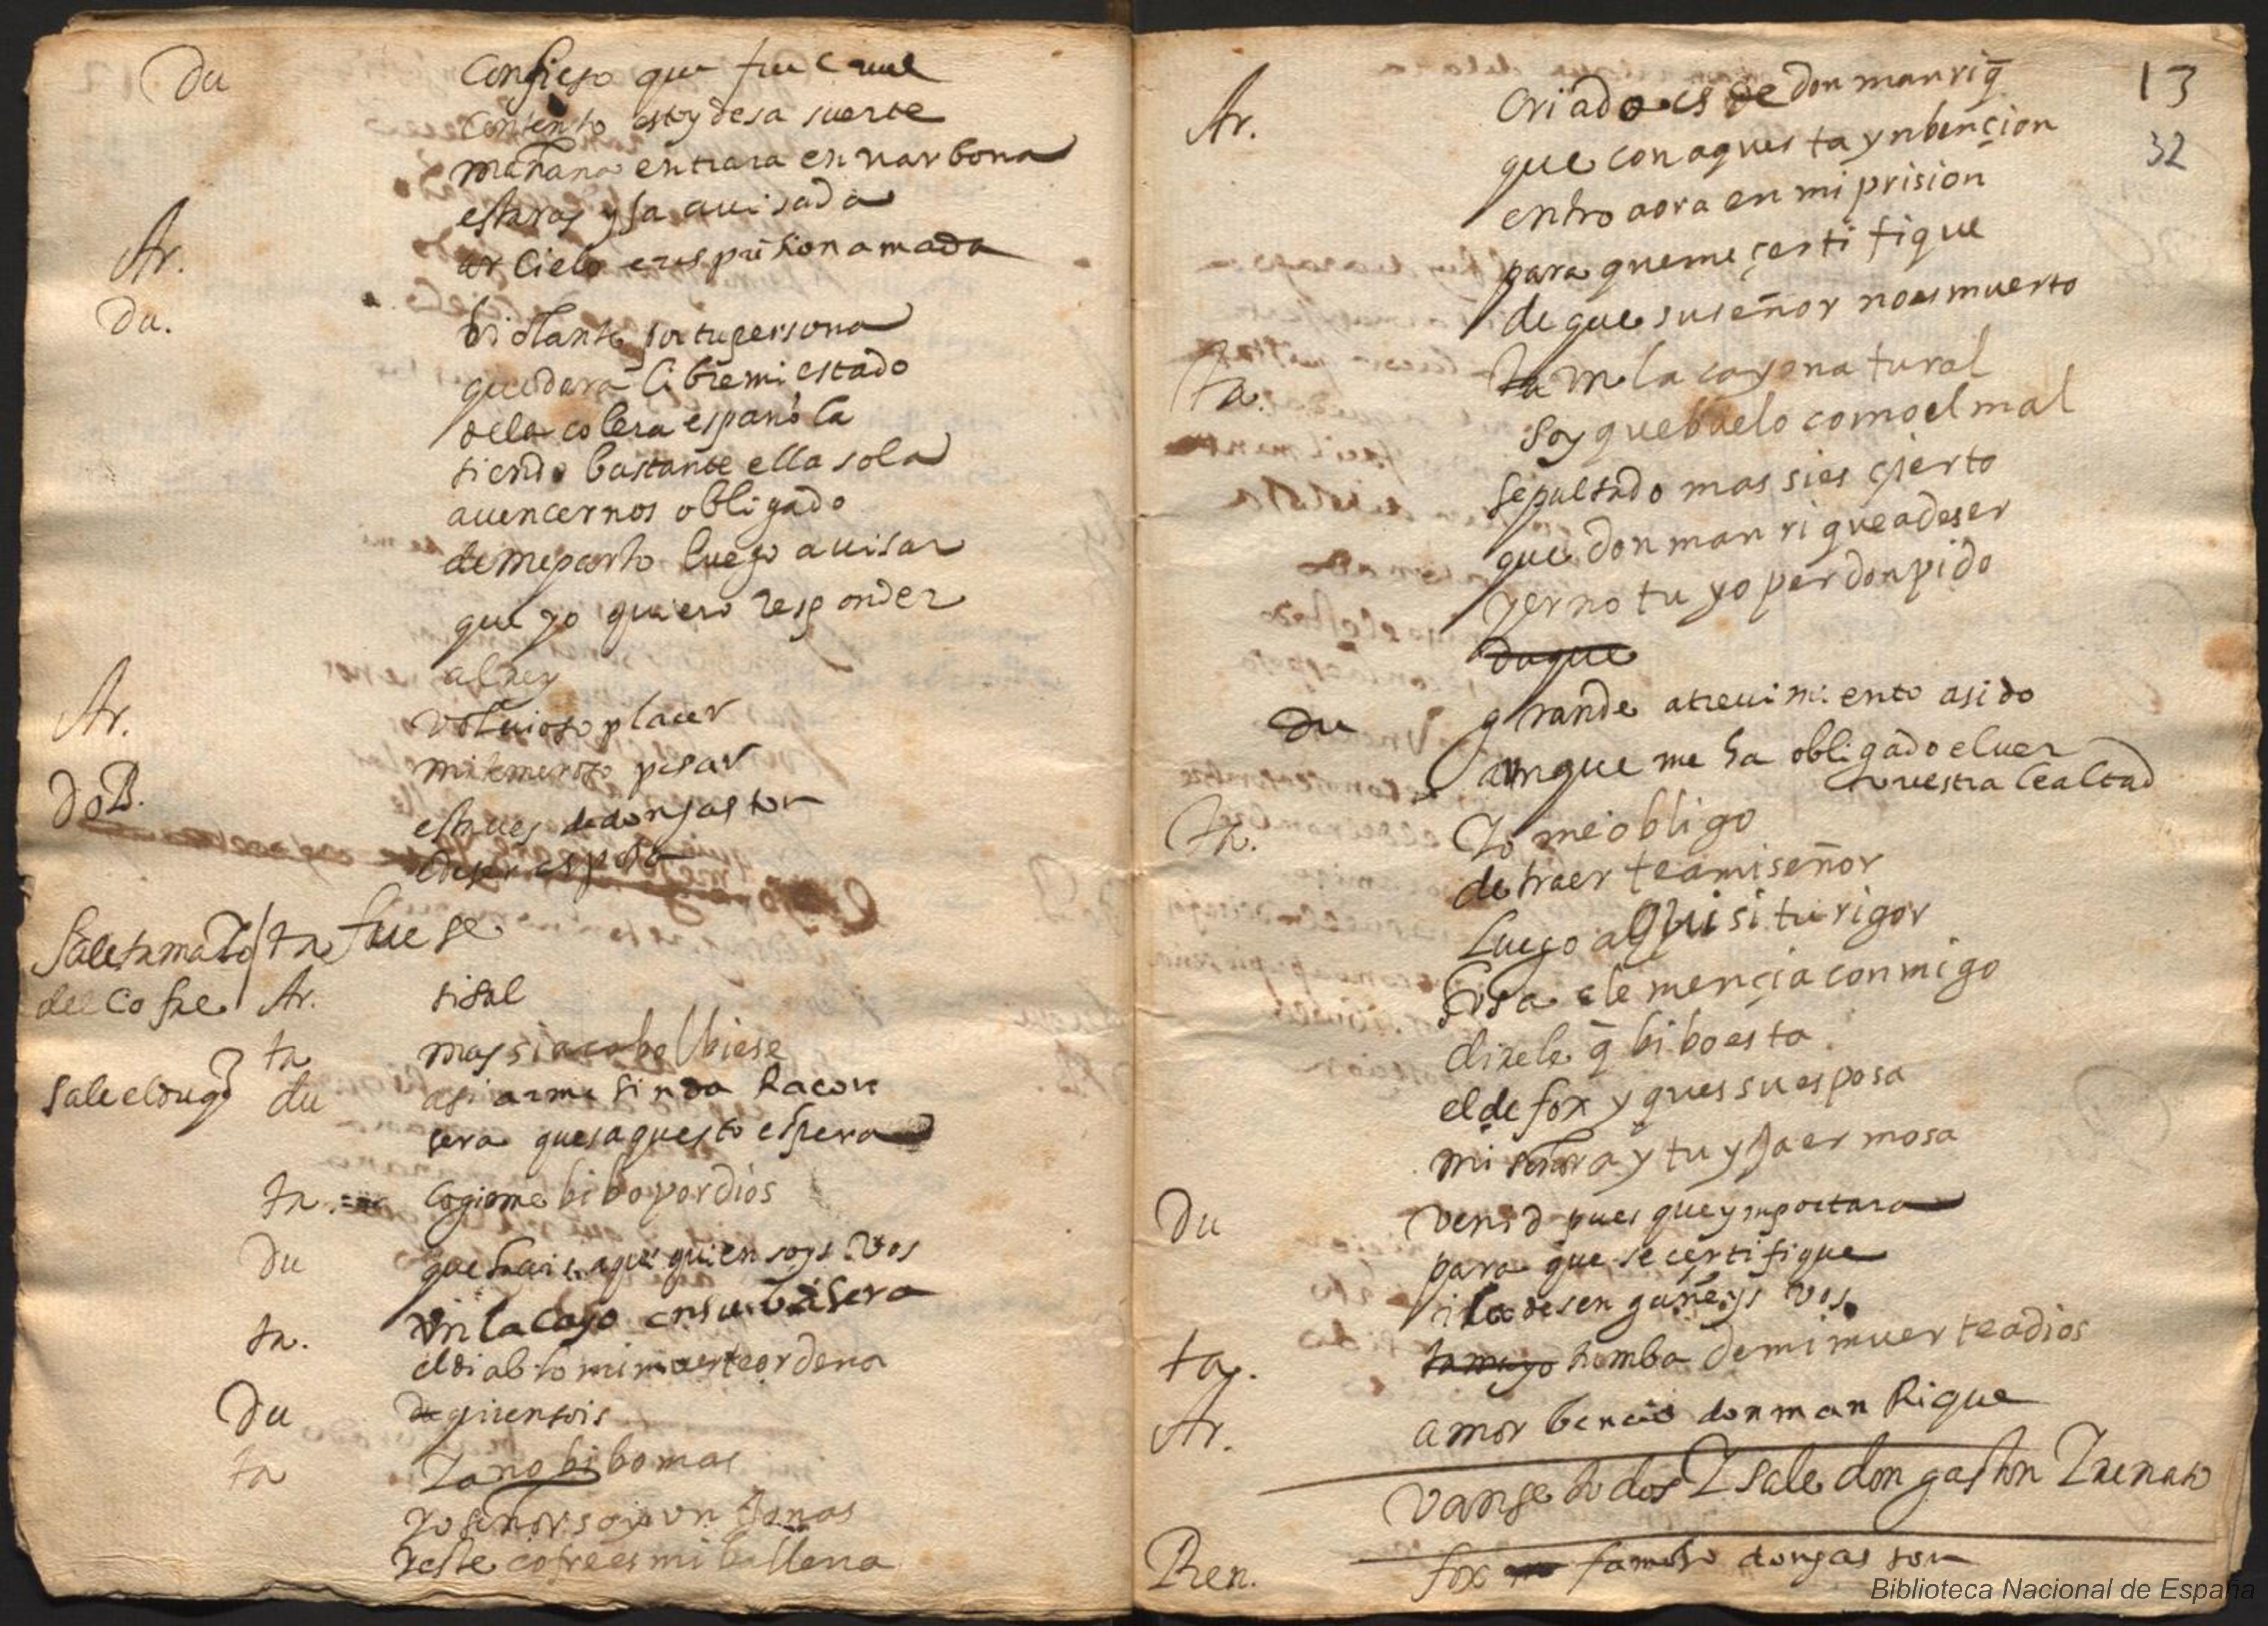 Du Confieso que fue cruel
Contento estoy desa suerte
mañana entrara en narbona
estaras yja auisada
Ar. ay Cielo eres prision amada
Du. biolante por tu persona
quedara libre mi estado
de la colera española
siendo bastante ella sola
a uencernos obligado
de me parto luego auisar
que yo quiero responder
al rey
Ar. Voluiose placer
mi temeroso pesar
DoB. es pues de don gaston
esposa
Sale tamaio del Cofre / ta fuese
Ar. si sal
ta mas si acabo/biese
Sale el duq du asi arme sin da Raçon
sera ques aquesto espera
ta. Cogiome bibo por dios
Du que haceis aqui quien soys Vos
ta. Vn lacayo en su basera
el diablo mi muerte ordena
Du de quien sois
ta Ya no bibo mas
yo señor soy vn Jonas
y este cofre es mi ballena
13
32
Ar. Criado es de don manriq̄
que con aquesta ynbençion
entro aora en mi prision
para que me çertifique
de que su señor no es muerto
Ta. la cayo natural
soy que buelo como el mal
sepultado mas si es çierto
que don manrique a de ser
yerno tuyo perdon pido
duque
Du grande atreuimiento a sido
aunque me ha obligado el uer
vuestra lealtad
Ta. Yo me obligo
de traer te a mi señor
Luego aqui si tu rigor
Vsa clemençia conmigo
direle q̄ bibo esta
el de fox y ques su esposa
mi señora y tu yja ermosa
Du Venid pues que ymportara
para que se çertifique
si la desengañeys vos
tay. tamayo tumba de mi muerte adios
Ar. amor bencio don man Rique
Vanse todos Y sale don gaston Y renato
Ren. fox famoso don gaston
Biblioteca Nacional de España